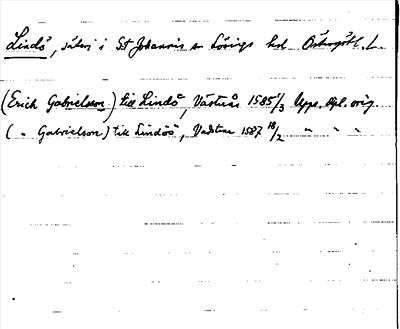 Lindö, säteri i St Johannis sn Lösings hd Östergötl. L.
(Erich Gabrielsson) till Lindö, Västerås 1585 1/3 Upps. dpl. orig.
( " Gabrielsson) till Lindöö, Vadstena 1587 18/2 " " "